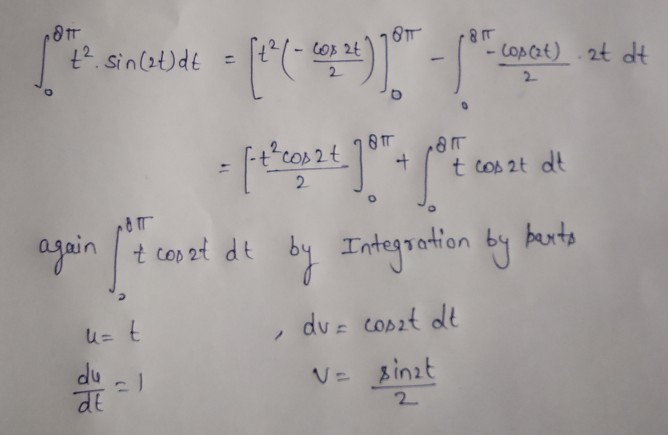 ∫₀^8π t². sin(2t)dt = [t²(- cos 2t/2)]₀^8π - ∫₀^8π -cos(2t)/2 . 2t dt
= [-t²cos2t/2]₀^8π + ∫₀^8π t cos2t dt
again ∫₀^8π t cos2t dt by Integration by parts
u= t , dv= cos2t dt
du/dt = 1 V= sin2t/2